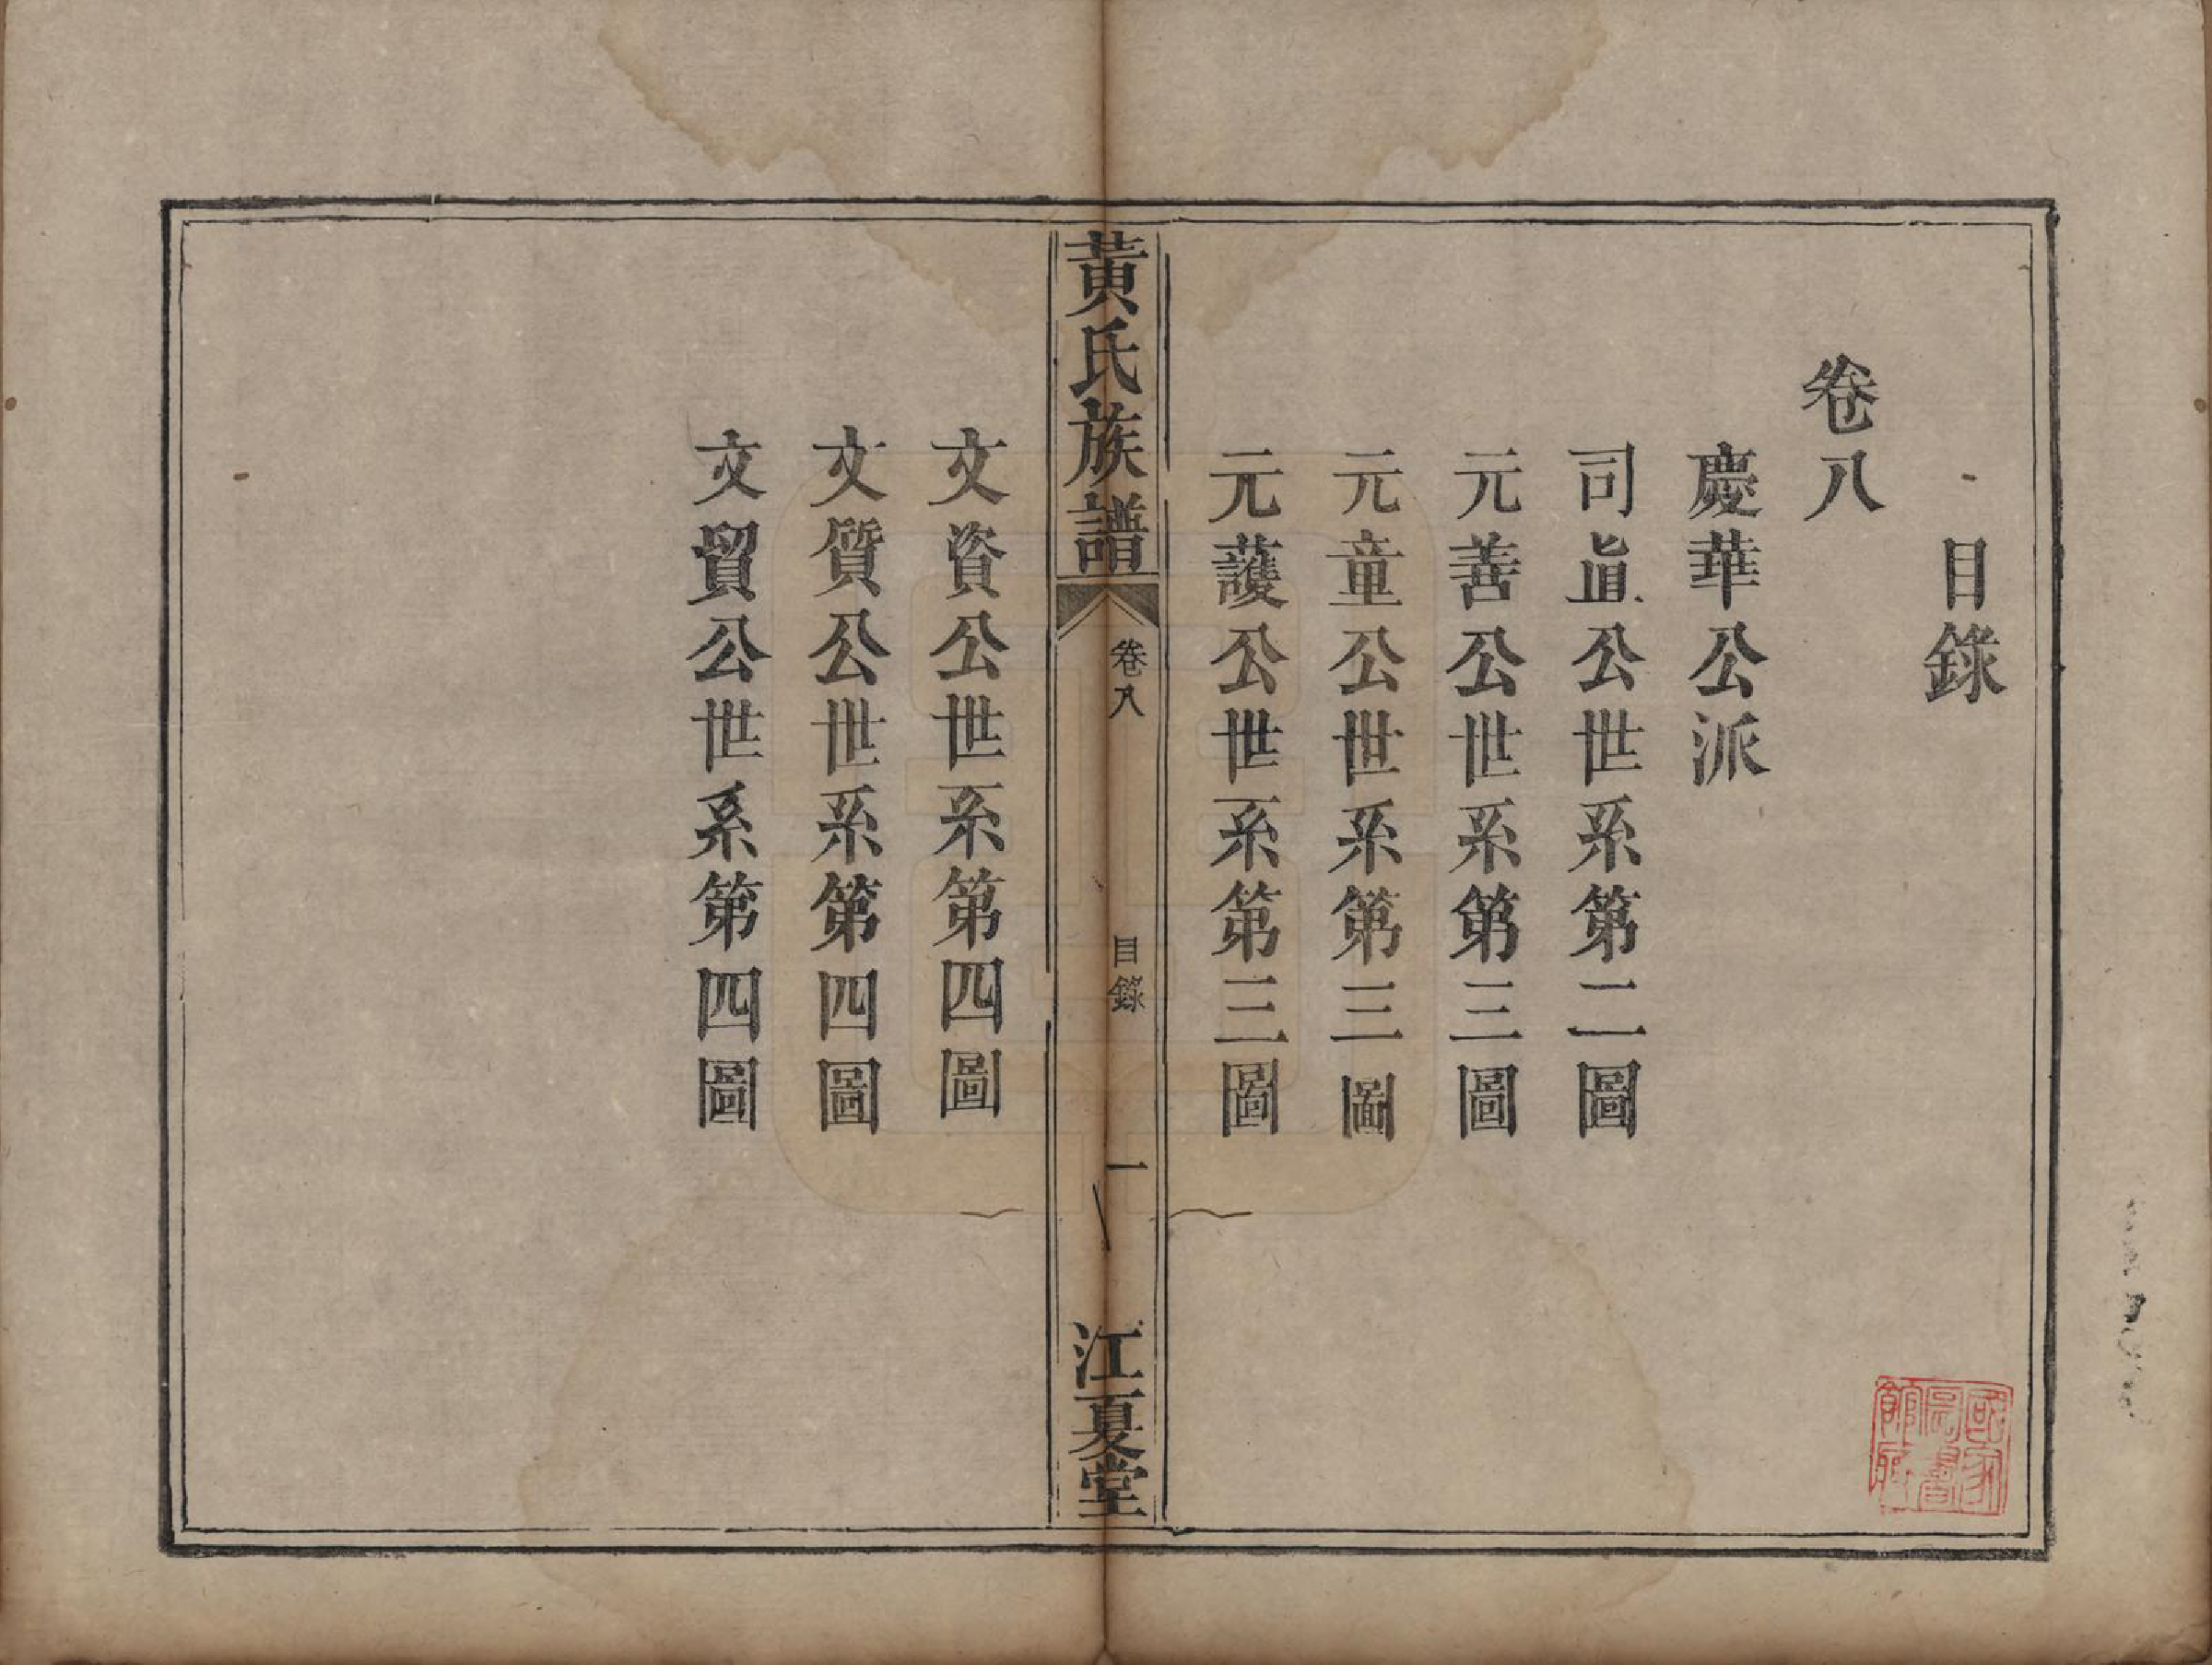 目錄
卷八
慶華公派
司眞公世系第二圖
元善公世系第三圖
元童公世系第三圖
元護公世系第三圖
黃氏族譜
卷八
目錄
一
江夏堂
文資公世系第四圖
文質公世系第四圖
文貿公世系第四圖
國家圖書館藏